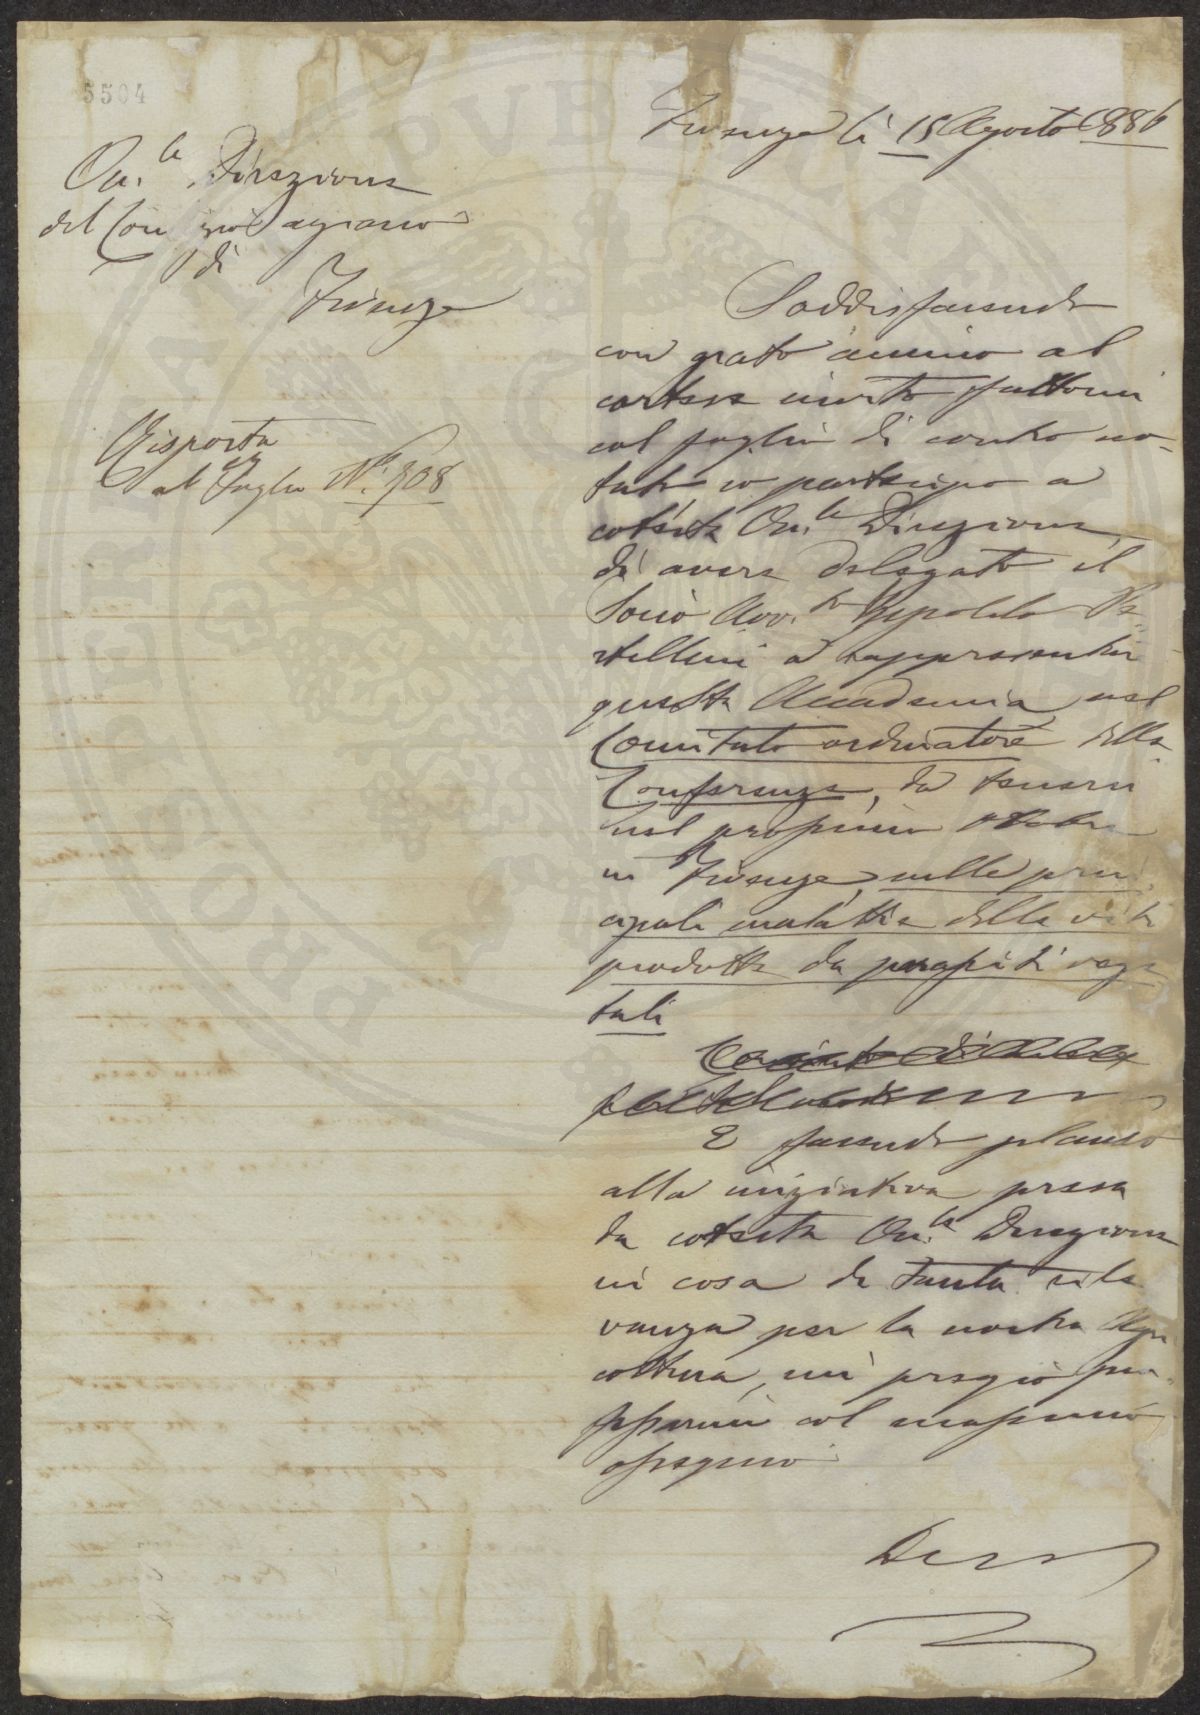 5504
Firenze li 15 Agosto 1886
On.le Direzione
del Comizio agrario
di
Firenze
Risposta
al Foglio N.° 508
Soddisfacendo
con grato animo al
cortese invito fattomi
col foglio di contro no-
tato io partecipo a
cotesta On.le Direzione
di avere delegato il
Socio Avv.to Ippolito Pe-
stellini a rappresentare
questa Accademia nel
Comitato ordinatore della
Conferenza, da tenersi
nel prossimo Ottobre
in Firenze, sulle prin
cipali malattie della vite
prodotte da parassiti vege
tali
E facendo plauso
alla iniziativa presa
da cotesta On.le Direzione
in cosa di tanta rile
vanza per la nostra Agri
coltura, mi pregio pro-
fessarmi col massimo
ossequio